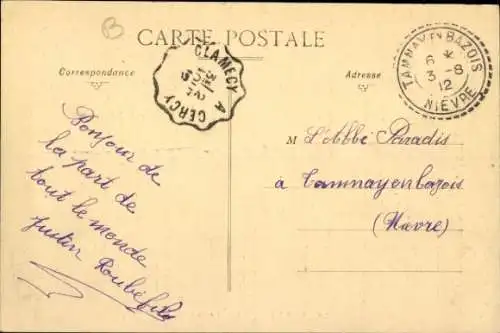 B
CARTE POSTALE
Correspondance
Adresse
CLAMECY A CERCY
TAMNAY EN BAZOIS
6 *
3 -8
12
NIÈVRE
Bonjour de
la part de
tout le monde
Justin
M L'Abbé Paradis
à Tamnayenbazois
(Nièvre)